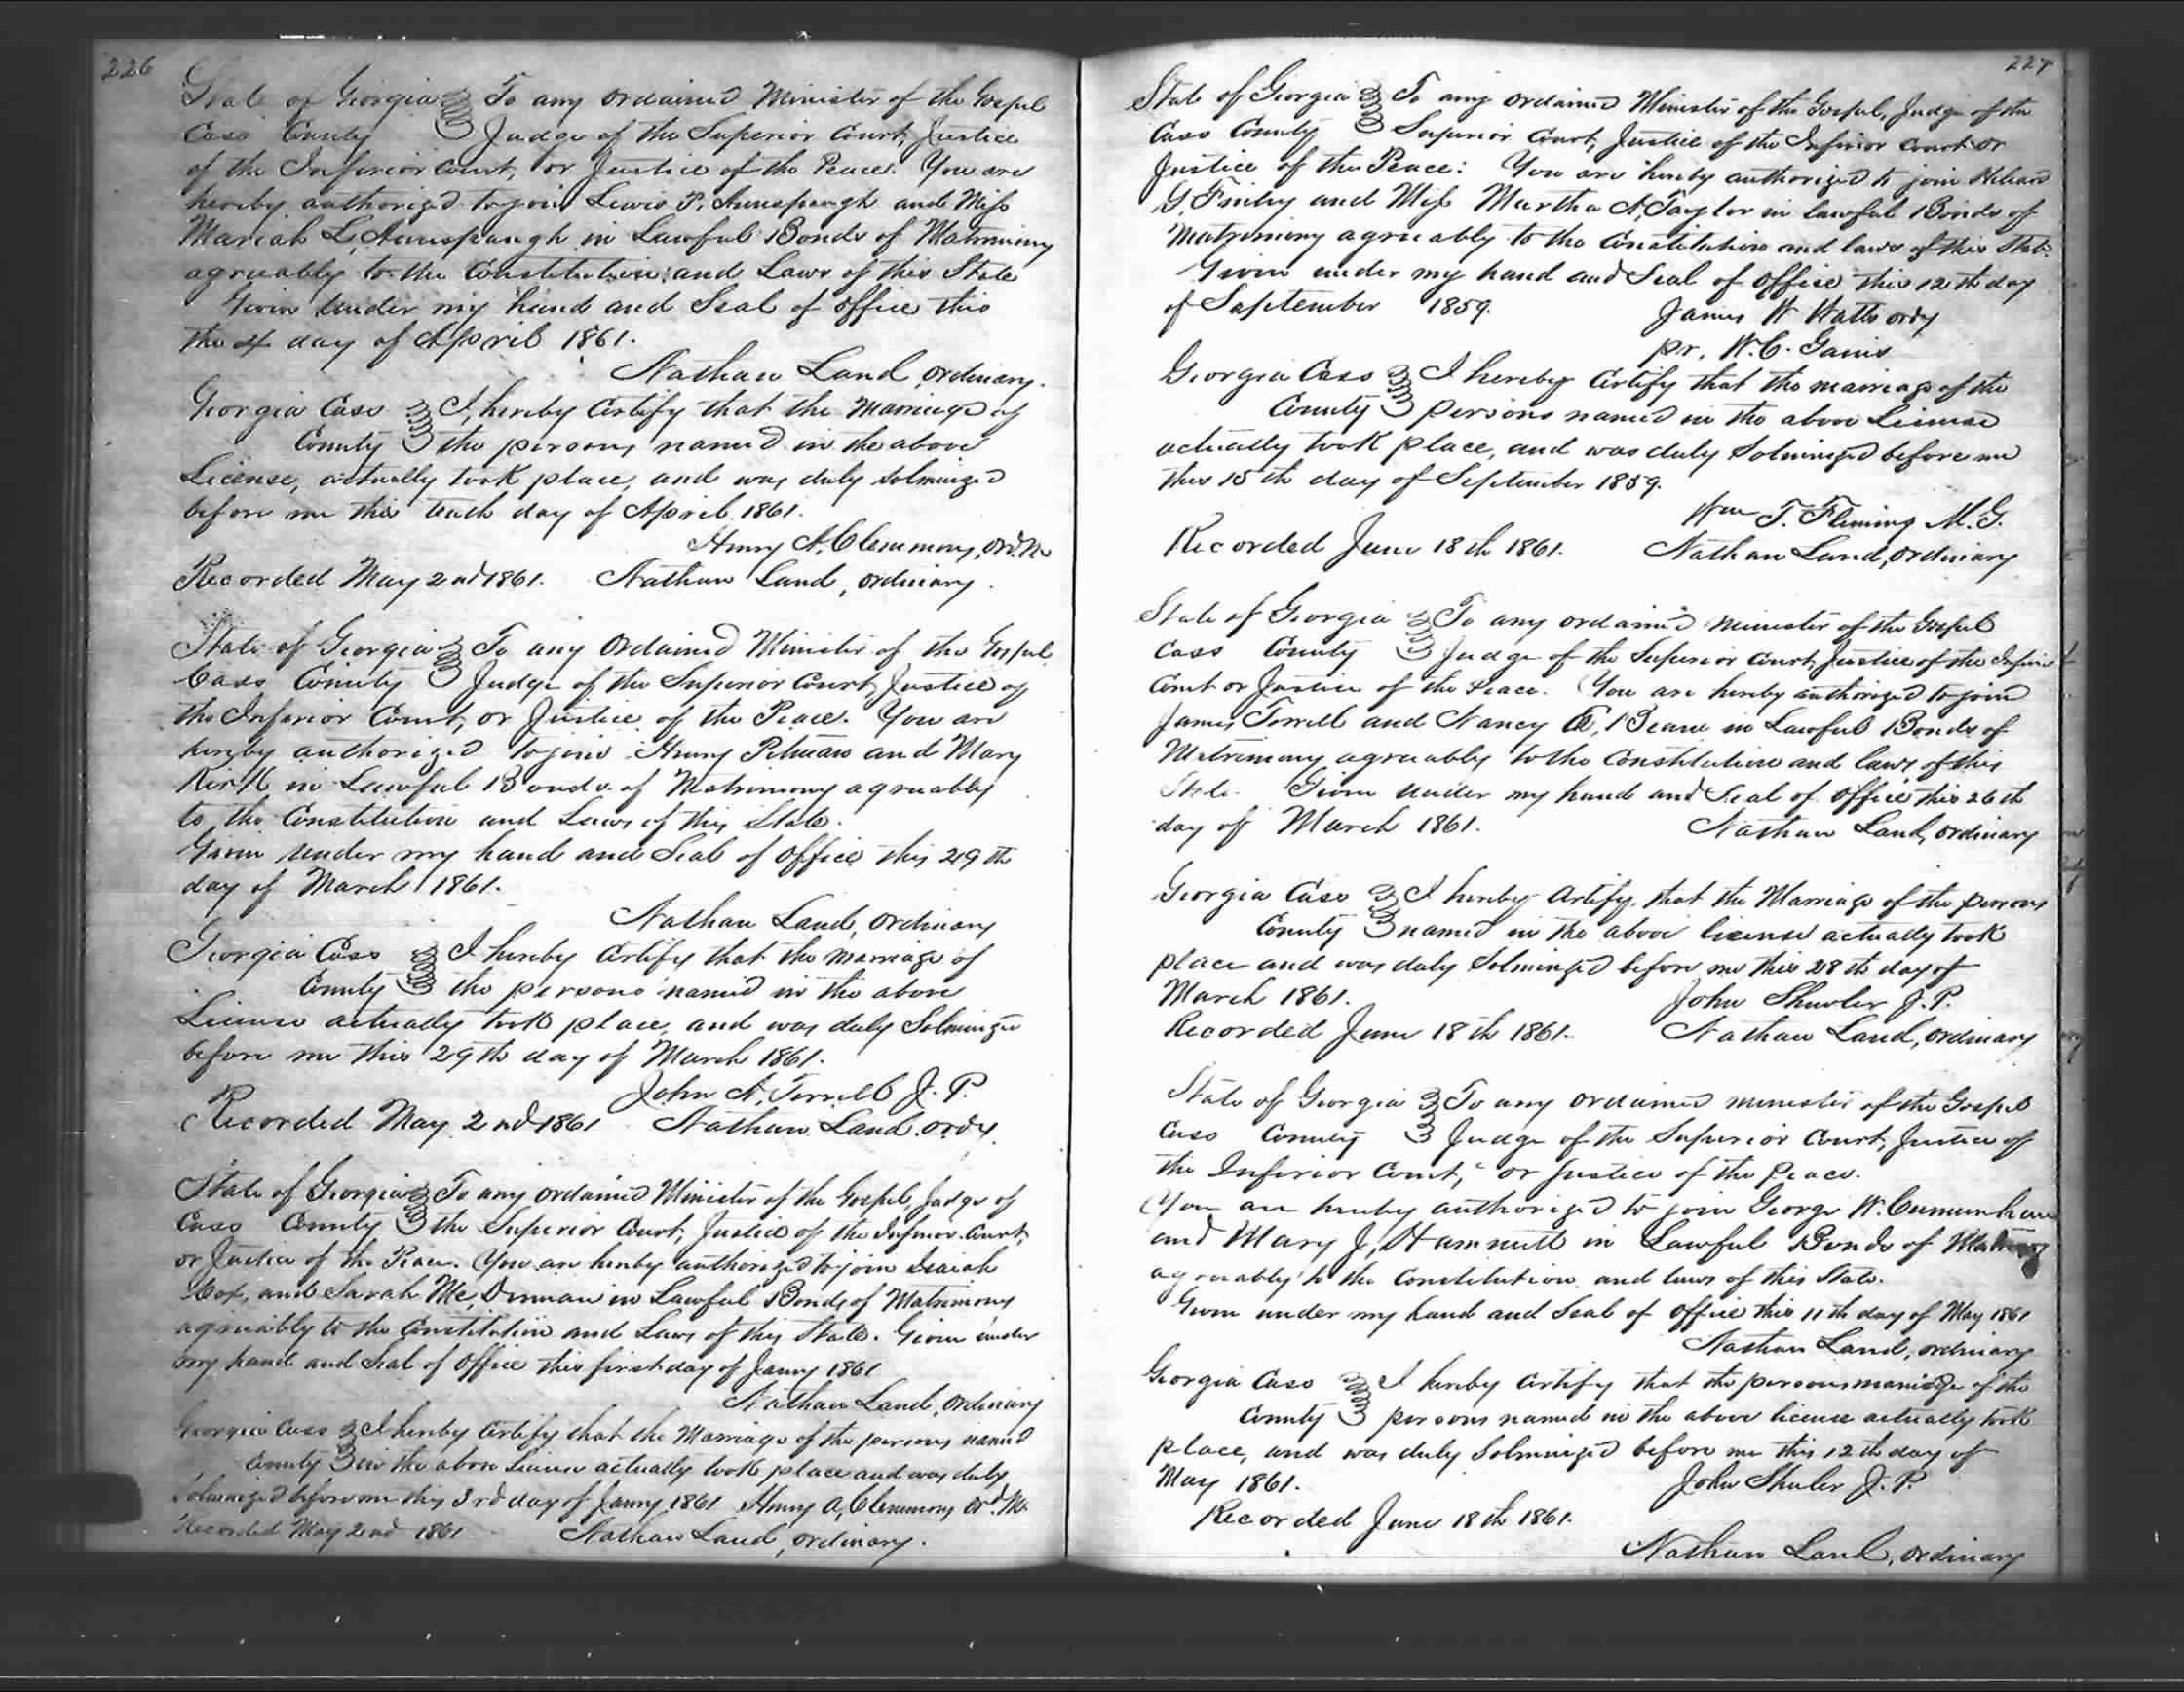 226
State of Georgia To any ordained Minister of the Gospel
Cass County Judge of the Superior Court, Justice
of the Inferior Court, or Justice of the Peace. You are
hereby authorized to join Lewis P. and Miss
Mariah L. in Lawful Bonds of Matrimony
agreeably to the Constitution and Laws of this State
Given under my hand and Seal of office this
the 4 day of April 1861.
Nathan Land, ordinary.
Georgia Cass I, hereby certify that the Marriage of
County the persons named in the above
License, actually took place, and was duly solminized
before me this day of April 1861.
Henry A. Clemmons, Ord. M
Recorded May 2nd 1861. Nathan Land, ordinary.
State of Georgia To any Ordained Minister of the Gospel
Cass County Judge of the Superior Court, Justice of
the Inferior Court, or Justice of the Peace. You are
hereby authorized to join Henry Pitman and Mary
Kirk in Lawful Bonds of Matrimony agreeably
to the Constitution and Laws of this State.
Given under my hand and Seal of office this 29th
day of March 1861.
Nathan Land, ordinary
Georgia Cass I hereby certify that the marriage of
County the persons named in the above
License actually took place, and was duly Solminized
before me this 29th day of March 1861.
John A. Terrell J. P.
Recorded May 2nd 1861 Nathan Land. ordy.
State of Georgia To any ordained Minister of the Gospel, Judge of
Cass County the Superior Court, Justice of the Inferior Court,
or Justice of the Peace. You are hereby authorized to join Isaiah
Cox, and Sarah Mc, Dinman in Lawful Bonds of Matrimony
agreeably to the Constitution and Laws of this State. Given under
my hand and Seal of Office this first day of Janny 1861
Nathan Land, ordinary
Georgia Cass I hereby certify that the Marriage of the persons named
County in the above License actually took place and was duly
Solminized before me this 3rd day of Janny 1861 Henry A, Clemmons Ord. M.
Recorded May 2nd 1861 Nathan Land, ordinary.
227
State of Georgia To any ordained Minister of the Gospel, Judge of the
Cass County Superior Court, Justice of the Inferior Court or
Justice of the Peace: You are hereby authorized to join
G. Finley and Miss Martha A. Taylor in lawful Bonds of
Matrimony agreeably to the Constitution and laws of this State.
Given under my hand and Seal of office this 12th day
of September 1859.
James W Watts ordy
pr. W. C. Gains
Georgia Cass I hereby certify that the marriage of the
County persons named in the above License
actually took place, and was duly Solminized before me
this 15th day of September 1859.
Wm T. Fleming M. G.
Recorded June 18th 1861. Nathan Land, ordinary
State of Georgia To any ordained minister of the Gospel
Cass County Judge of the Superior Court, Justice of the Inferior
Court or Justice of the Peace. You are hereby authorized to join
James Terrell and Nancy E, in Lawful Bonds of
Matrimony agreeably to the Constitution and laws of this
State. Given under my hand and Seal of office this 26th
day of March 1861. Nathan Land, ordinary
Georgia Cass I hereby certify, that the Marriage of the persons
County named in the above license actually took
place and was duly Solminized before me this 28th day of
March 1861. John Shuler J. P.
Recorded June 18th 1861. Nathan Land, ordinary
State of Georgia To any ordained minister of the Gospel
Cass County Judge of the Superior Court, Justice of
the Inferior Court, or Justice of the Peace.
You are hereby authorized to join George W.
and Mary J, Hamnett in Lawful Bonds of Matrimony
agreeably to the Constitution and laws of this State.
Given under my hand and Seal of office this 11th day of May 1861
Nathan Land, ordinary
Georgia Cass I hereby certify that the persons marriage of the
County persons named in the above license actually took
place, and was duly Solminized before me this 12th day of
May 1861. John Shuler J. P.
Recorded June 18th 1861.
Nathan Land, ordinary